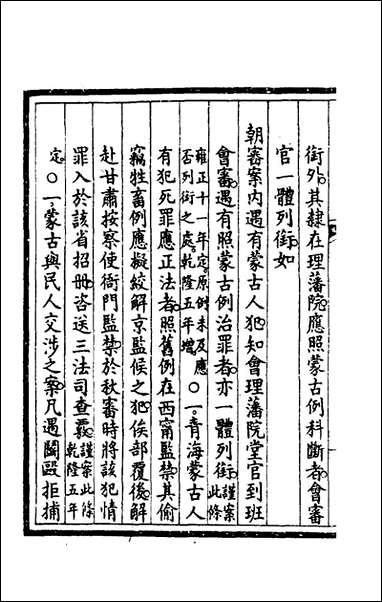 銜外其隸在理藩院應照蒙古例科斷者會審
官一體列銜如
朝審案内遇有蒙古人犯知會理藩院堂官到班
會審遇有照蒙古例治罪者亦一體列銜謹案此條
雍正十一年定原例未及應否列銜之處乾隆五年增○一青海蒙古人
有犯死罪應正法者照舊例在西甯監禁其偷
竊牲畜例應擬絞解京監候之犯俟部覆後解
赴甘肅按察使衙門監禁於秋審時將該犯情
罪入於該省招冊咨送三法司查覈謹案此條乾隆五年
定○一蒙古與民人交涉之案凡遇鬬毆拒捕